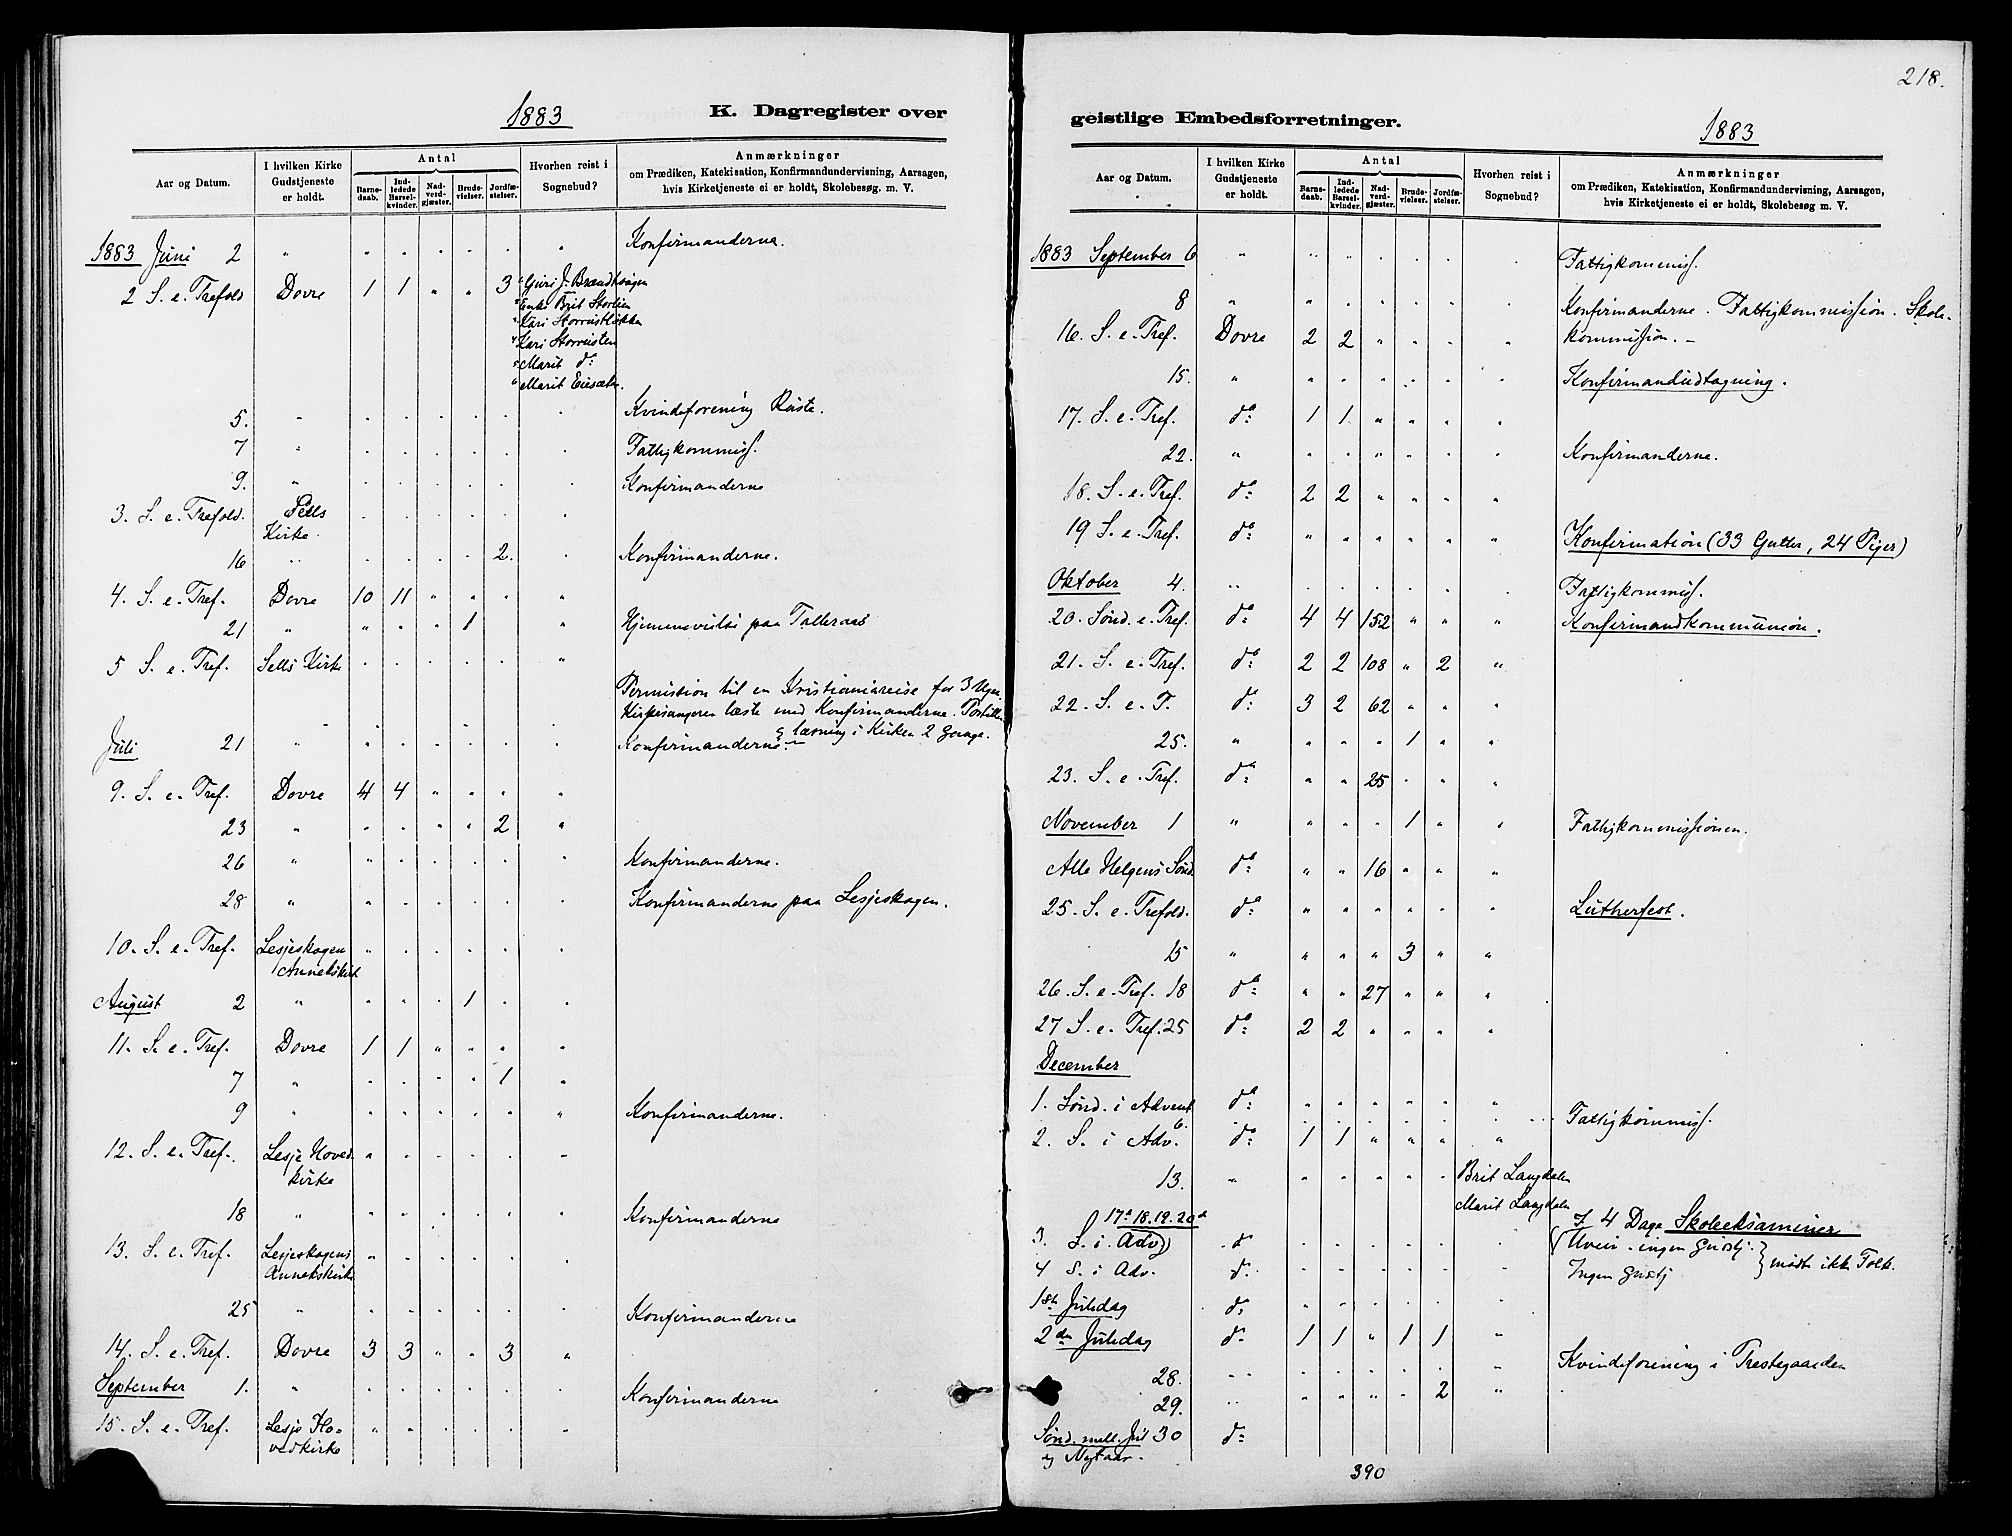 1883 K. Dagregister over
Aar og Datum. I hvilken Kirke Gudstjeneste er holdt. Antal Barnedaab. Indledede Barselkvinder. Nadverdgjæster. Brudevielser. Jordfæstelser. Hvorhen reist i Sognebud? Anmærkninger
om Prædiken, Katekisation, Konfirmandundervisning, Aarsagen,
hvis Kirketjeneste ei er holdt, Skolebesøg. m. V.
1883 Juni 2 " " " " " " " Konfirmanderne.
2 S. e. Trefold Dovre 1 1 " " 3 Guri J. Brændhaugen
Enke Brit Storlien
Kari Storrustløkken
Kari Storrusten
Marit do
Marit
5. " " " " " " " Kvindeforening Ruste.
7 " " " " " " " Fattigkommiss.
9. " " " " " " " Konfirmanderne
3. S. e. Trefold. Sells
Kirke. " " " " " "
16 " " " " " 2. " Konfirmanderne.
4. S. e. Tref. Dovre 10 11 " " " "
21 " " " " 1 " Hjemmevielse paa Talleraas
5 S. e. Tref. Sells Kirke " " " " " "
Permission til en Kristianiareise for 3 Uger.
Kirkesangeren læste med Konfirmanderne.
læsning i Kirken 2 Gange.
Juli 21 " " " " " " " Konfirmanderne
9. S. e. Tref. Dovre 4 4 " " " "
23 " " " " " 2 "
26 " " " " " " " Konfirmanderne.
28 " " " " " " " Konfirmanderne paa Lesjeskogen.
10. S. e. Tref. Lesjeskogen
Annekskirke " " " " " "
August 2 " " " " 1 " "
11. S. e. Tref. Dovre 1 1 " " " "
7 " " " " " 1 "
9 " " " " " " " Konfirmanderne.
12. S. e. Tref. Lesje Hoved
kirke " " " " " "
18 " " " " " " " Konfirmanderne
13. S. e. Tref. Lesjeskogens
Annekskirke " " " " " "
25 " " " " " " " Konfirmanderne
14. S. e. Tref. Dovre 3 3 " " 3 "
September 1. " " " " " " " Konfirmanderne
15. S. e. Tref. Lesje Ho-
vedkirke " " " " " "
218.
geistlige Embedsforretninger. 1883
Aar og Datum. I hvilken Kirke Gudstjeneste er holdt. Antal Barnedaab. Indledede Barselkvinder. Nadverdgjæster. Brudevielser. Jordfæstelser. Hvorhen reist i Sognebud? Anmærkninger
om Prædiken, Katekisation, Konfirmandundervisning, Aarsagen,
hvis Kirketjeneste ei er holdt, Skolebesøg m. V.
1883 September 6 " " " " " " " Fattigkommiss.
8 " " " " " " " Konfirmanderne. Fattigkommission. Skole-
16. S. e. Tref. Dovre 2 2 " " " " kommission. -
15. " " " " " " " Konfirmandudtagning.
17. S. e. Tref. do 1 1 " " " "
22. " " " " " " " Konfirmanderne.
18. S. e. Tref. do 2 2 " " " "
19 S. e. Tref. do " " " " " " Konfirmation (33 Gutter, 24 Piger)
Oktober 4. " " " " " " " Fattigkommiss.
20. Sönd. e. Tref. do 4 4 152 " " " Konfirmandkommunion.
21. S. e. Tref. do 2 2 108 " 2 "
22. S. e. T. do 3 2 62 " " "
25. " " " " 1 " "
23. S. e. Tref. do " " 25 " " "
November 1 " " " " 1 " " Fattigkommissionen.
Alle Helgens Sönd. do " " 16 " " "
25. S. e. Trefold. do " " " " " " Lutherfest.
15 " " " " 3 " "
26. S. e. Tref. 18 do " " 27 " " "
27 S. e. Tref. 25 do 2 2 " " " "
December
1. Sönd. i Advent do " " " " " "
6. " " " " " " Fattigkommiss.
2. S. i Adv. do 1 1 " " " "
13. " " " " " " Brit Langdalen
Marit Langdalen
17de 18. 19. 20de I 4 Dage Skoleeksaminer
3. S. i Adv) do " " " " " " (Uveir - ingen Gudstj. } mødt ikke Folk.
4 S. i Adv. do " " " " " " Ingen Gudstj
1ste Juledag do " " " " " "
2den Juledag do 1 1 " 1 1 "
28. " " " " " " " Kvindeforening i Prestegaarden
29. " " " " " 2 "
Sönd. mell. Jul 30 do
og Nytaar.
390